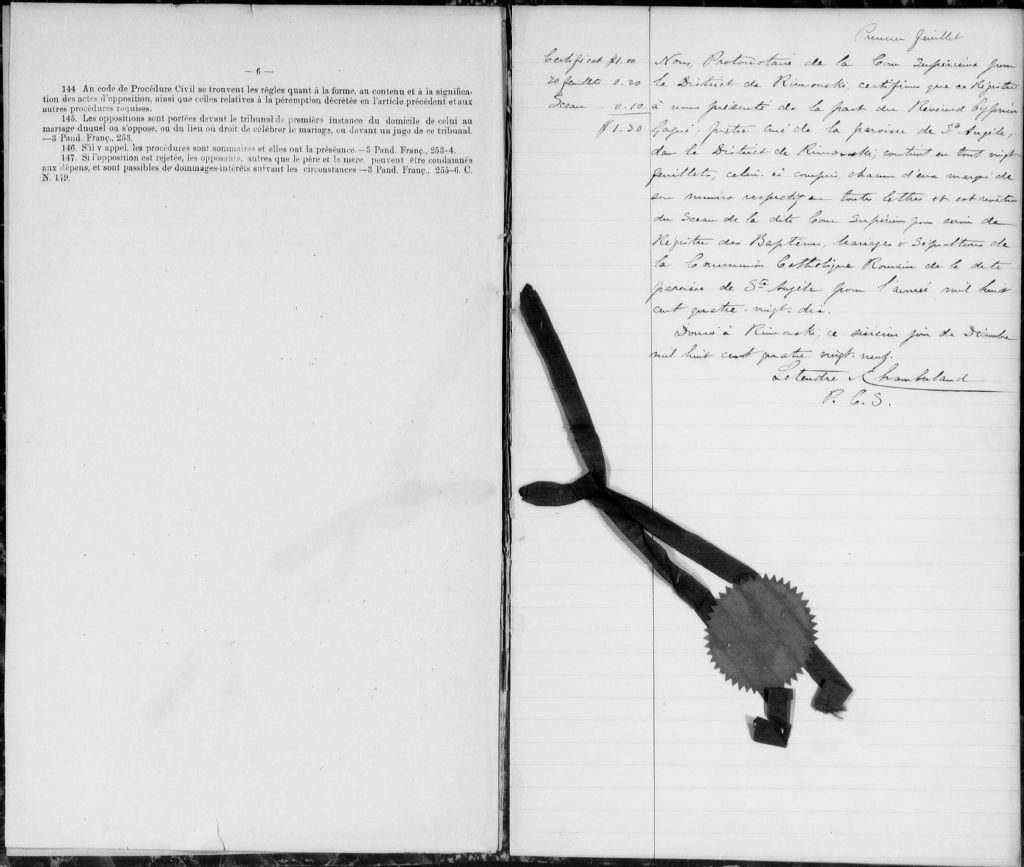 — 6 —
144 Au code de Procédure Civil se trouvent les règles quant à la forme, au contenu et à la significa-
tion des actes d'opposition, ainsi que celles relatives à la péremption décrétée en l'article précédent et aux
autres procédures requises.
145. Les oppositions sont portées devant le tribunal de première instance du domicile de celui au
mariage duquel on s'oppose, ou du lieu où droit de célébrer le mariage, ou devant un juge de ce tribunal.
—3 Pand. Franç., 253.
146. S'il y appel, les procédures sont sommaires et elles ont la préséance.—3 Pand. Franç., 253-4.
147. Si l'opposition est rejetée, les opposants, autres que le père et la mère, peuvent être condamnés
aux dépens, et sont passibles de dommages-intérêts suivant les circonstances—3 Pand. Franç., 255-6. C.
N. 179.
Premier feuillet
Certificat $1.00
20 feuillets 0.20
Sceau - 0.10
$1.30
Nous, Protonotaire de la Cour Supérieure pour
le District de Rimouski, certifions que ce Régistre
à nous présenté de la part du Révérend Cyprien
Gagné, prêtre curé de la paroisse de Ste Angèle,
dans le District de Rimouski, contient en tout vingt
feuillets, celui-ci compris, chacun d'eux marqué de
son numéro respectif en toutes lettres et est revêtu
du Sceau de la dite Cour Supérieure pour servir de
Régistre des Baptêmes, Mariages & Sépultures de
la Communion Catholique Romaine de la dite
paroisse de Ste Angèle pour l'année mil huit
cent quatre-vingt-dix.
Donné à Rimouski, ce sixième jour de Décembre
mil huit cent quatre vingt-neuf.
Letendre & Chamberland
P. C. S.